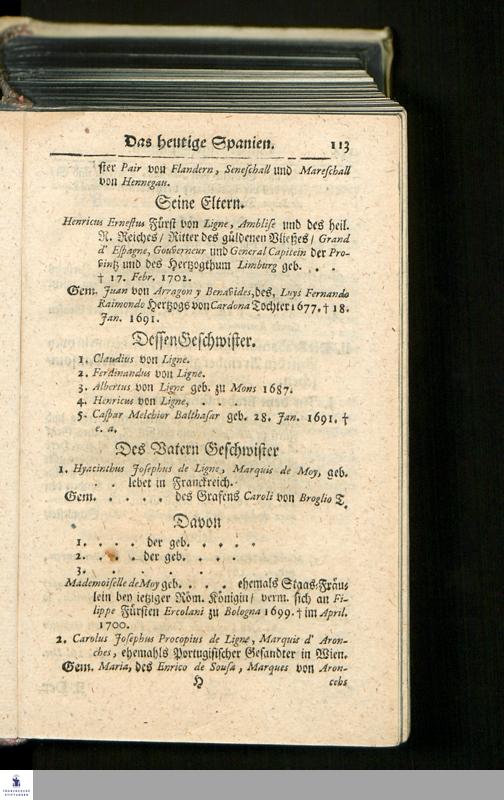 Das heutige Spanien. 113
ster Pair von Flandern, Seneschall und Mareschall
von Hennegau.
Seine Eltern.
Henricus Ernestus Fürst von Ligne, Amblise und des heil.
R. Reiches/ Ritter des güldenen Vließes/ Grand
d' Espagne, Gouverneur und General Capitein der Pro-
vintz und des Hertzogthum Limburg geb. . .
† 17. Febr. 1702.
Gem. Juan von Arragon y Benavides, des, Luys Fernando
Raimondo Hertzogs von Cardona Tochter 1677. † 18.
Jan. 1691.
Dessen Geschwister.
1. Claudius von Ligne.
2. Ferdinandus von Ligne.
3. Albertus von Ligne geb. zu Mons 1687.
4. Henricus von Ligne,
5. Caspar Melchior Balthasar geb. 28. Jan. 1691. †
e. a.
Des Vatern Geschwister
1. Hyacinthus Josephus de Ligne, Marquis de Moy, geb.
. lebet in Franckreich.
Gem. . . . . des Grafens Caroli von Broglio T.
Davon
1. . . . der geb. . . . .
2. . . . der geb. . . . .
3. . . . . . .
Mademoiselle de Moy geb. . . . ehemals Staas-Fräu-
lein bey ietziger Röm. Königin/ verm. sich an Fi-
lippe Fürsten Ercolani zu Bologna 1699. † im April.
1700.
2. Carolus Josephus Procopius de Ligne, Marquis d' Aron-
ches, ehemahls Portugisischer Gesandter in Wien.
Gem. Maria, des Enrico de Sousa, Marques von Aron-
H chs
FRANCKESCHE
STIFTUNGEN